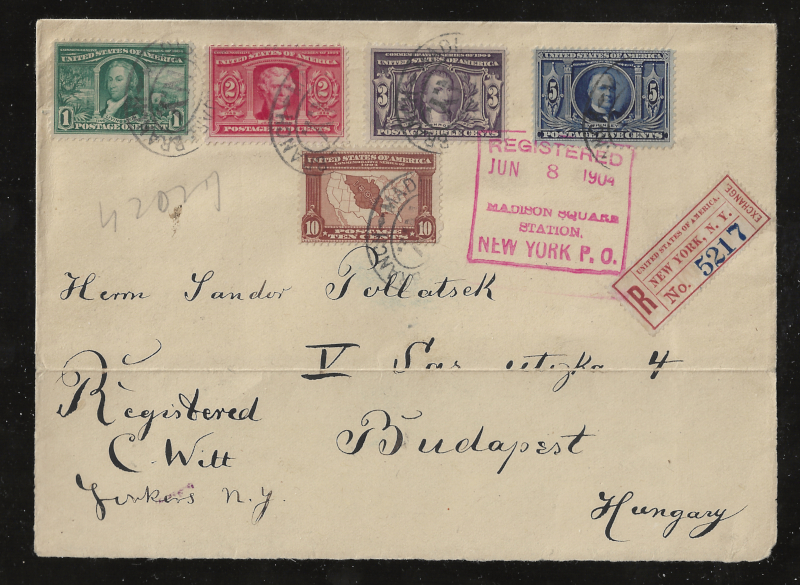 UNITED STATES OF AMERICA
1 POSTAGE ONE CENT 1
UNITED STATES OF AMERICA
2 2
POSTAGE TWO CENTS
COMMEMORATIVE SERIES OF 1904
UNITED STATES OF AMERICA
3 3
POSTAGE TRIPLE CENTS
UNITED STATES OF AMERICA
5 5
POSTAGE FIVE CENTS
UNITED STATES OF AMERICA
COMMEMORATIVE SERIES OF
1904
10 POSTAGE 10
TEN CENTS
REGISTERED
JUN 8 1904
MADISON SQUARE
STATION,
NEW YORK P. O.
UNITED STATES OF AMERICA.
EXCHANGE
NEW YORK, N. Y.
R No. 5217
Herrn Sandor Pollatsek
V Sas utczka 4
Budapest
Hungary
Registered
C Witt
Yonkers N.Y.